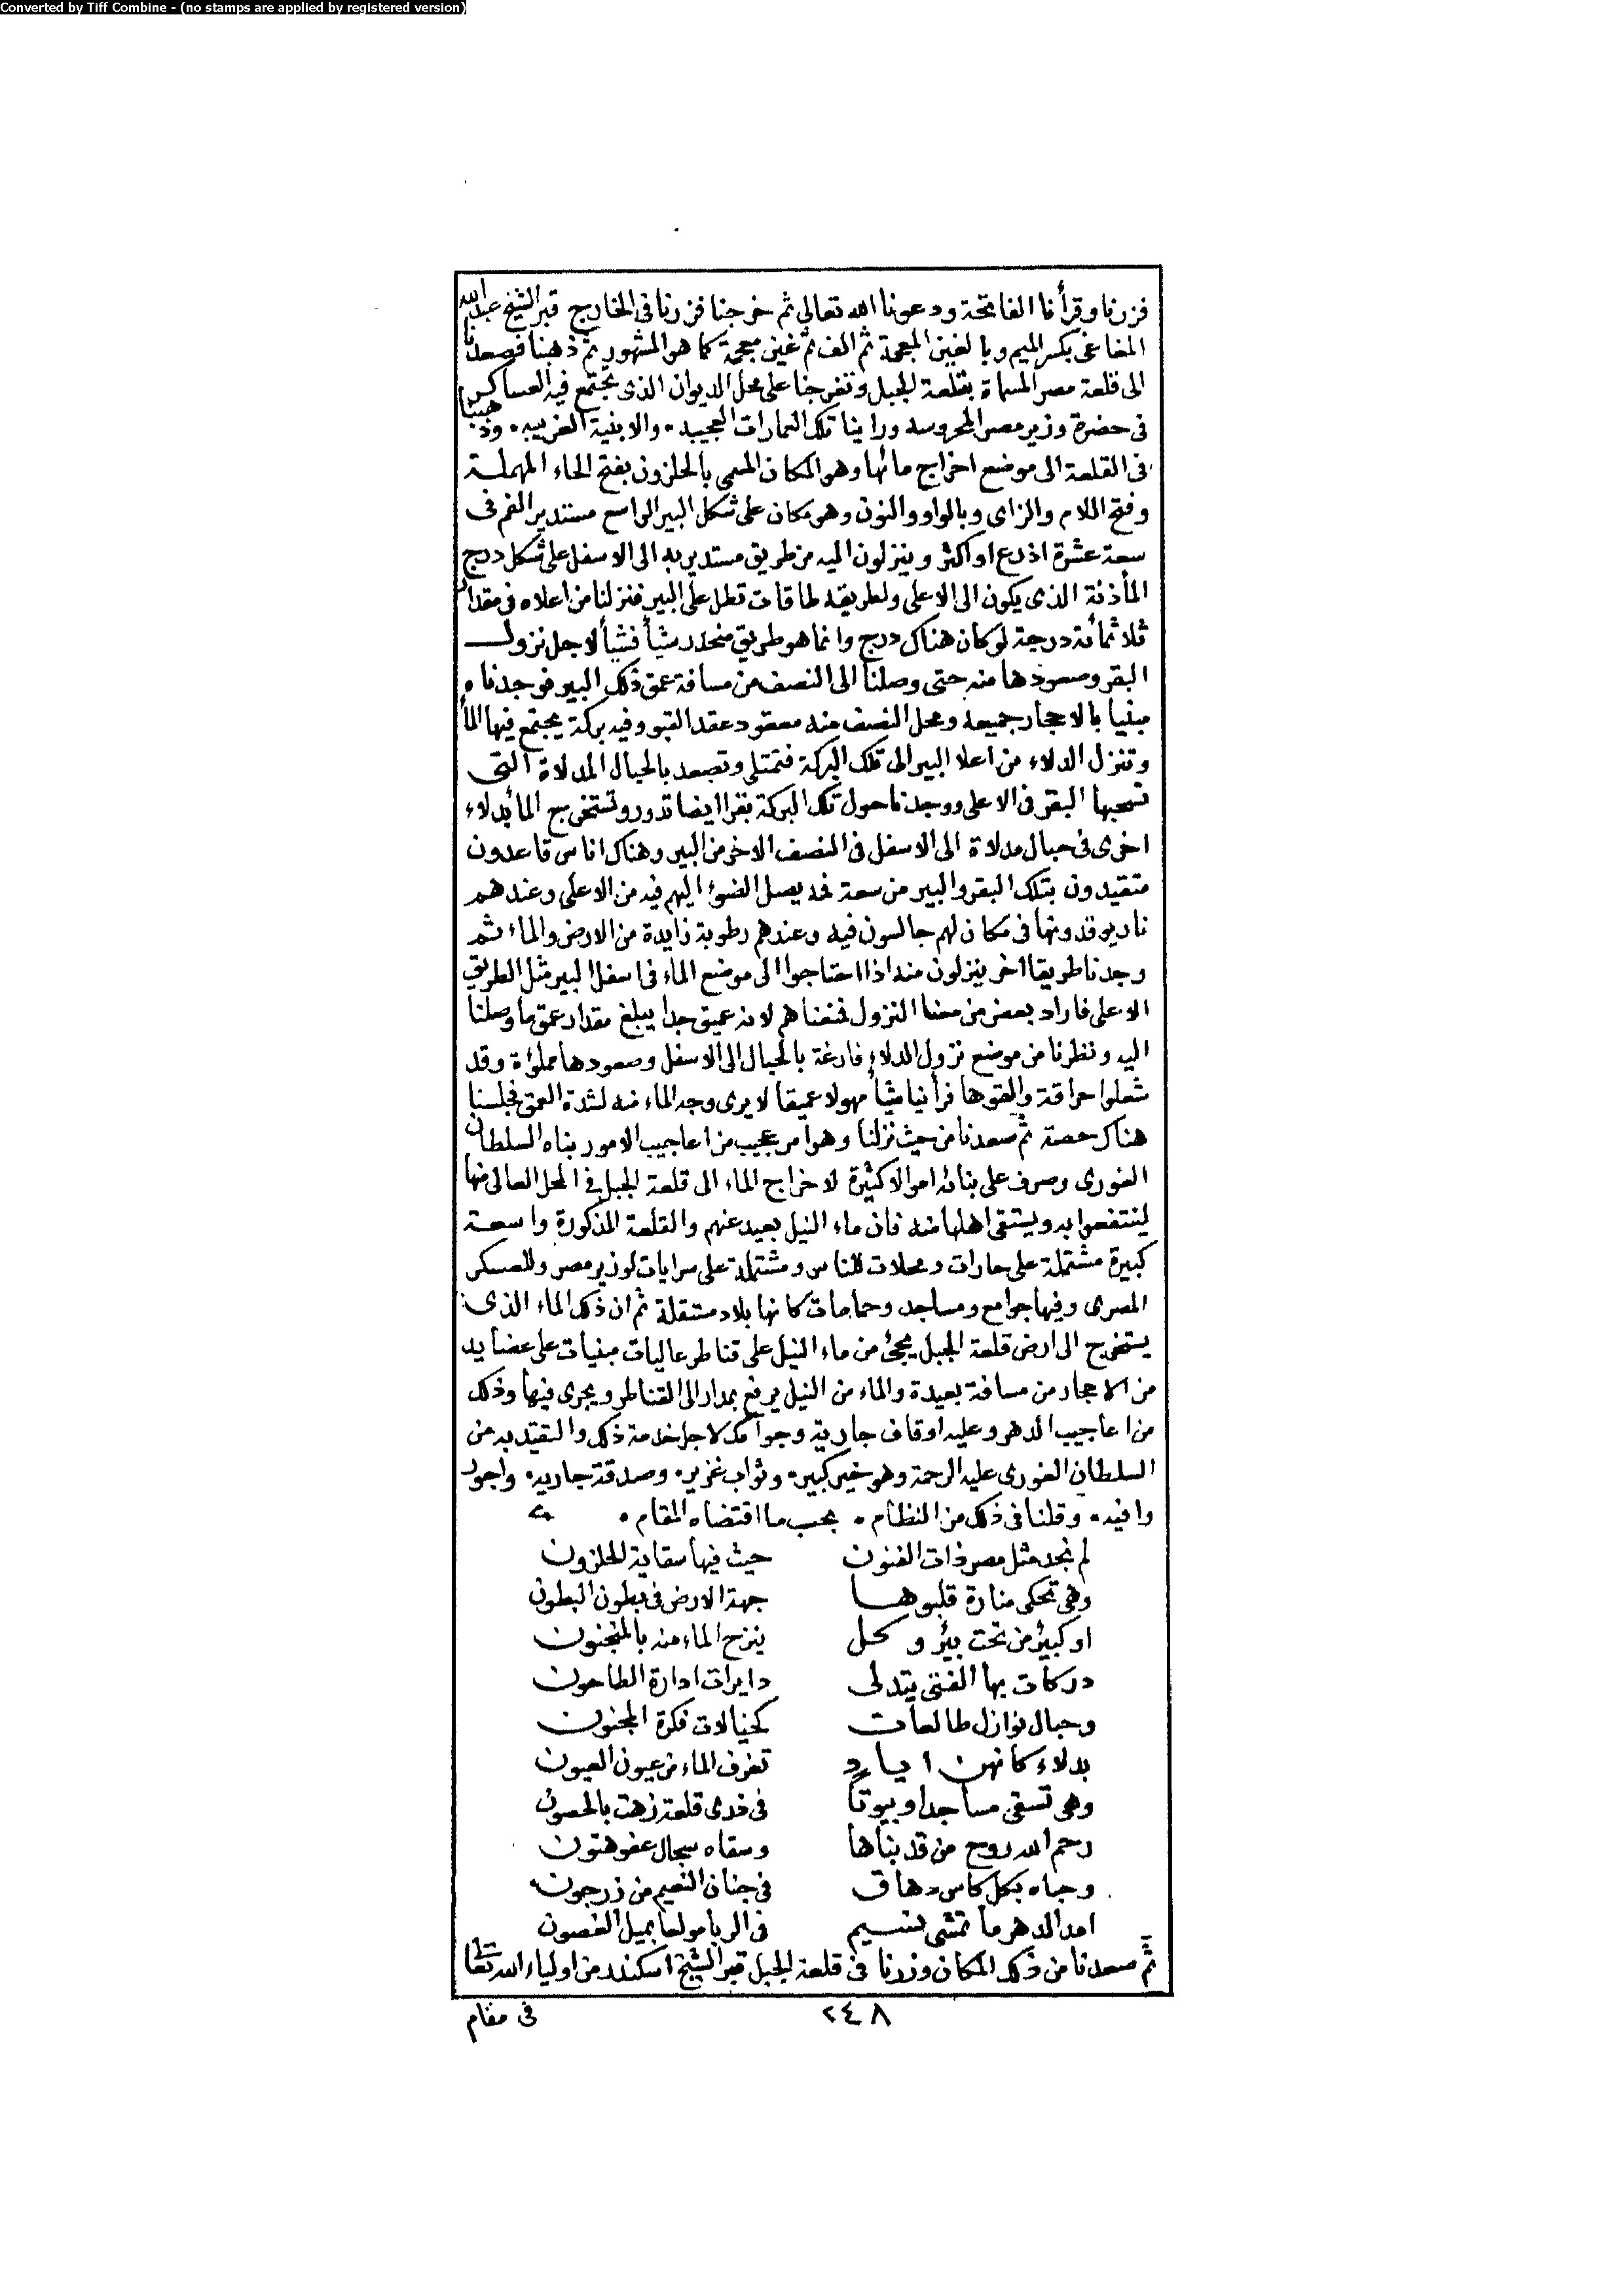 Converted by Tiff Combine - (no stamps are applied by registered version)
فزرنا وقرأنا الفاتحة ودعونا الله تعالى ثم خرجنا فزرنا فى الخارج قبر الشيخ عبدالله
المغاغى بكسر الميم وبالغين المعجمة ثم الف ثم غين معجمة كما هو المشهور ثم ذهبنا فصعدنا
الى قلعة مصر المسماة بقلعة الجبل وتفرجنا على محل الديوان الذى يجتمع فيه العساكر
فى حضرة وزير مصر المحروسه وراينا تلك العمارات العجيبه • والابنية الغريبه • وذهبنا
فى القلعة الى موضع اخراج مائها وهو المكان المسمى بالحلزون بفتح الحاء المهملة
وفتح اللام والزاى وبالواو والنون وهو مكان على شكل البير الواسع مستدير الفم فى
سعة عشرة اذرع او اكثر وينزلون اليه من طريق مستدير به الى الاسفل على شكل درج
المأذنة الذى يكون الى الاعلى ولطريقه طاقات تطل على البير فنزلنا من اعلاه فى مقدار
ثلاثمائة درجة لو كان هناك درج وانما هو طريق منحدر شيأ فشيأ لاجل نزول
البقر وصعودها منه حتى وصلنا الى النصف من مسافة عمق ذلك البير فوجدناه
مبنيا بالاحجار جميعه ومحل النصف منه معقود عقد القبو وفيه بركة يجتمع فيها الماء
وتنزل الدلاء من اعلا البير الى تلك البركة فتمتلى وتصعد بالحبال المدلاة التى
تسحبها البقر فى الاعلى ووجدنا حول تلك البركة بقرا ايضا تدور وتستخرج الماء بدلاء
اخرى فى حبال مدلاة الى الاسفل فى النصف الاخر من البير وهناك اناس قاعدون
متقيدون بتلك البقر والبير من سعة فمه يصل الضوء اليهم فيه من الاعلى وعندهم
نار يوقدونها فى مكان لهم جالسون فيه وعندهم رطوبة زايدة من الارض والماء ثم
وجدنا طريقا اخر ينزلون منه اذا احتاجوا الى موضع الماء فى اسفل البير مثل الطريق
الاعلى فاراد بعض من معنا النزول فمنعناهم لانه عميق جدا يبلغ مقدار عمق ما وصلنا
اليه ونظرنا من موضع نزول الدلاء فارغة بالحبال الى الاسفل وصعودها مملؤة وقد
شعلوا حراقة والقوها فرأينا شيأ مهولا عميقا لا يرى وجه الماء منه لشدة العمق فجلسنا
هناك حصة ثم صعدنا من حيث نزلنا وهو امر عجيب من اعاجيب الامور بناه السلطان
الغورى وصرف على بنائه اموالا كثيرة لاخراج الماء الى قلعة الجبل فى المحل العالى منها
لينتفعوا به ويستقى اهلها منه فان ماء النيل بعيد عنهم والقلعة المذكورة واسعة
كبيرة مشتملة على حارات ومحلات للناس ومشتملة على سرايات لوزير مصر وللعسكر
المصرى وفيها جوامع ومساجد وحمامات كانها بلاد مستقلة ثم ان ذلك الماء الذى
يستخرج الى ارض قلعة الجبل يجئ من ماء النيل على قناطر عاليات مبنيات على عضايد
من الاحجار من مسافة بعيدة والماء من النيل يرفع بمدار الى القناطر ويجرى فيها وذلك
من اعاجيب الدهر وعليه اوقاف جارية وجوامك لاجل خدمة ذلك والتقيد به من
السلطان الغورى عليه الرحمة وهو خير كبير • وثواب غزير • وصدقة جاريه • واجور
وافيه • وقلنا فى ذلك من النظام • بحسب ما اقتضاه المقام •
لم نجد مثل مصر ذات الفنون حيث فيها سقاية الحلزون
وهى تحكى منارة قلبوها جهة الارض فى بطون البطون
او كبير من تحت بئر وكل ينزح الماء منه بالمنجنون
دركات بها الفتى يتدلى دايرات ادارة الطاحون
وحبال نوازل طالعات كخيالات فكرة المجنون
بدلاء كانهن اياد تغرف الماء من عيون العيون
وهى تسقى مساجدا وبيوتا فى ذرى قلعة زهت بالحصون
رحم الله روح من قد بناها وسقاه سجال عفو هتون
وحباه بكل كاس دهاق فى جنان النعيم من زرجون
امد الدهر ما تمشى نسيم فى الربا مولعا بميل الغصون
ثم صعدنا من ذلك المكان وزرنا فى قلعة الجبل قبر الشيخ اسكندر من اولياء الله تعالى
٢٤٨
فى مقام